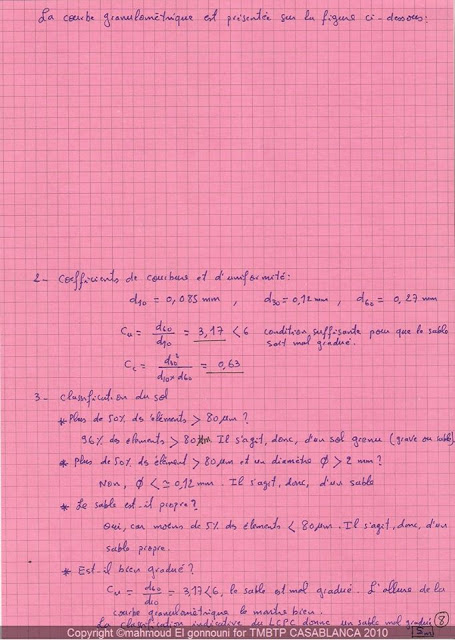 La courbe granulométrique est présentée sur la figure ci-dessous:
2- Coefficients de courbure et d'uniformité:
d10 = 0,085 mm , d30 = 0,12 mm , d60 = 0,27 mm
Cu = d60/d10 = 3,17 < 6 condition suffisante pour que le sable
soit mal gradué.
Cc = d30²/d10×d60 = 0,63
3- Classification du sol
* Plus de 50% des éléments > 80 µm ?
96% des éléments > 80 µm Il s'agit, donc, d'un sol grenu (grave ou sable)
* Plus de 50% des élément > 80 µm et un diamètre ϕ > 2 mm ?
Non, ϕ < ≃ 0,12 mm. Il s'agit, donc, d'un sable
* Le sable est-il propre ?
Oui, car moins de 5% des éléments < 80 µm. Il s'agit, donc, d'un
sable propre.
* Est-il bien gradué ?
Cu = d60/d10 = 3,17 < 6, le sable est mal gradué. L'allure de la
courbe granulométrique le montre bien.
La classification indicative du LCPC donne un sable mal gradué
Sm
8
Copyright ©mahmoud El gonnouni for TMBTP CASABLANCA 2010